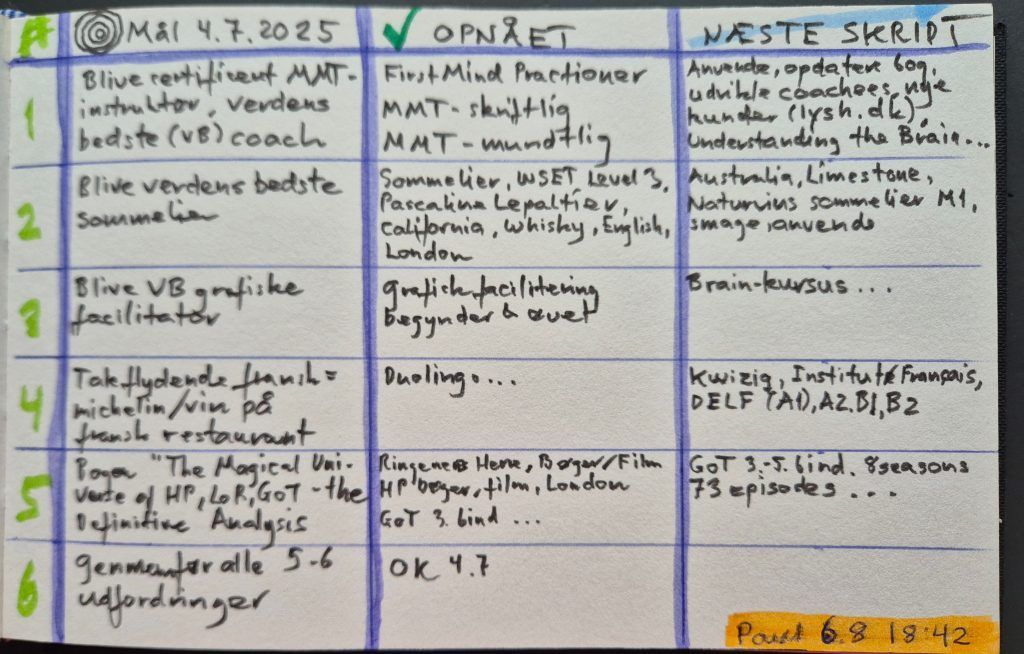 # Mål 4.7.2025 ✓ OPNÅET NÆSTE SKRIDT
1
Blive certificeret MMT-
instruktør, verdens
bedste (VB) coach
First Mind Practioner
MMT-skriftlig
MMT-mundtlig
Anvende, opdatere bog,
udvikle coachees, nye
kunder (lysh.dk),
Understanding the Brain...
2
Blive verdens bedste
sommelier
Sommelier, WSET Level 3,
Pascaline Lepaltier,
California, Whisky, English,
London
Australia, Limestone,
Naturvins sommelier M1,
smage, anvende
3
Blive VB grafiske
facilitator
Grafisk facilitering
begynder & øvet
Brain-kursus...
4
Tale flydende fransk =
michelin/vin på
fransk restaurant
Duolingo...
Kwiziq, Institut Français,
DELF (A1), A2, B1, B2
5
Bogen "The Magical Uni-
verse of HP, LoR, GoT - the
Definitive Analysis
Ringenes Herre, Bøger/Film
HP bøger, film, London
GoT 3. bind ...
GoT 3.-5. bind. 8 seasons
73 episodes ...
6
Gennemfør alle 5-6
udfordringer
OK 4.7
6.8 18:42